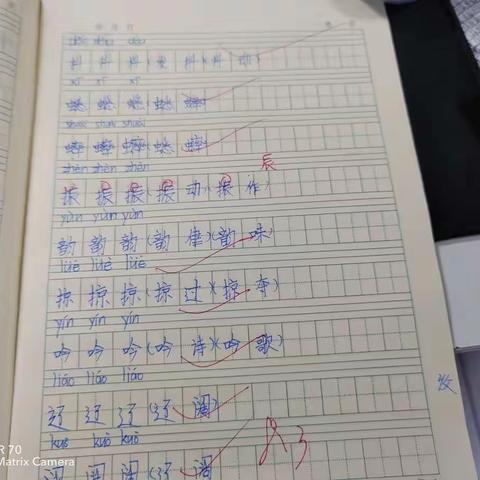 抖 抖 抖 (发 抖)(抖 动)
xī xī xī
蟋 蟋 蟋 (蟋 蟀)
shuài shuài shuài
蟀 蟀 蟀 (蟋 蟀)
zhèn zhèn zhèn
辰
振 振 振 (振 动)(振 作)
yùn yùn yùn
韵 韵 韵 (韵 律)(韵 味)
lüè lüè lüè
掠 掠 掠 (掠 过)(掠 夺)
yín yín yín
吟 吟 吟 (吟 诗)(吟 歌)
liáo liáo liáo
辽 辽 辽 (辽 阔)
kuò kuò kuò
阔 阔 阔 (辽 阔
R 70
Matrix Camera